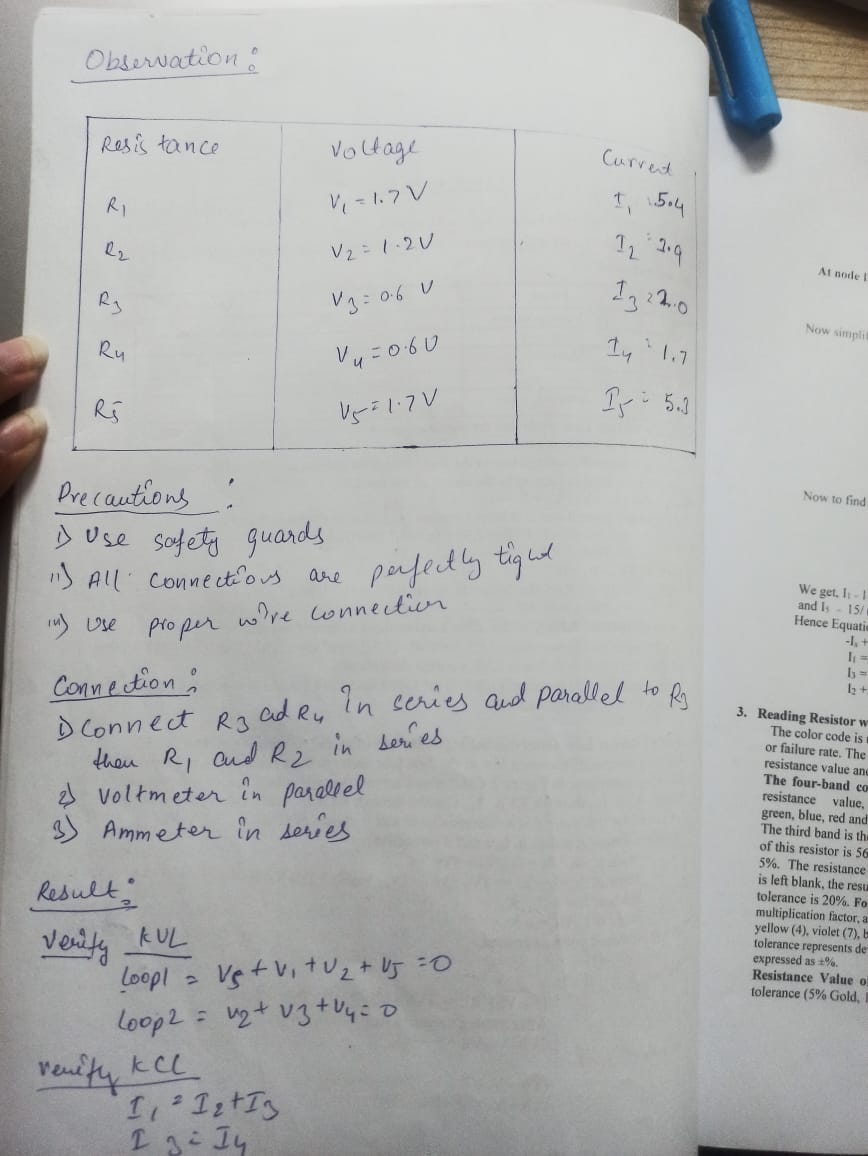 Observation:
Resistance Voltage Current
R1 V1 = 1.7 V I1 : 5.4
R2 V2 = 1.2V I2 : 2.9
R3 V3 = 0.6 V I3 : 2.0
R4 V4 = 0.6V I4 : 1.7
R5 V5 = 1.7 V I5 = 5.3
Precautions :
i) Use safety guards
ii) All connections are perfectly tight
iii) Use proper wire connection
Connection :
1) Connect R3 ad R4 in series and parallel to R3
then R1 and R2 in series
2) Voltmeter in parallel
3) Ammeter in series
Result :
Verify KVL
Loop1 = VS + V1 + V2 + V5 = 0
Loop2 = V2 + V3 + V4 = 0
Verify KCL
I1 = I2 + I3
I3 = I4
At node
Now simpli
Now to find
We get, I1
and I5 15/
Hence Equati
I1 =
I3 =
I2 +
3. Reading Resistor
The color code is
or failure rate. The
resistance value an
The four-band co
resistance value,
green, blue, red and
The third band is th
of this resistor is 56
5%. The resistance
is left blank, the resu
tolerance is 20%. Fo
multiplication factor, a
yellow (4), violet (7), b
tolerance represents de
expressed as ±%.
Resistance Value o
tolerance (5% Gold,